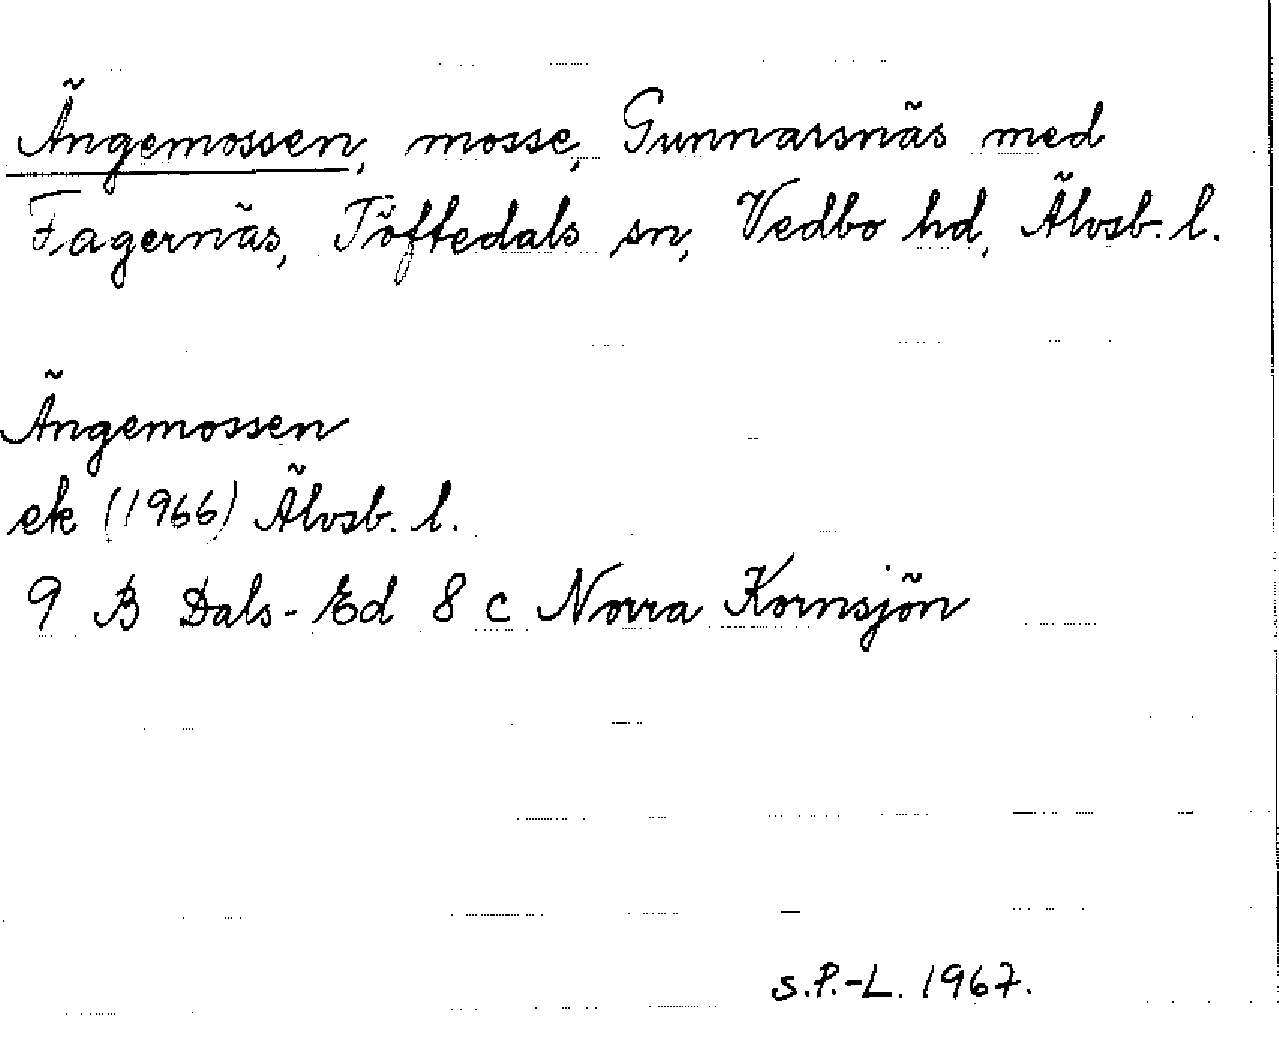 Ängemossen, mosse, Gunnarsnäs med
Fagernäs, Töftedals sn, Vedbo hd, Älvsb. l.
Ängemossen
ek (1966) Älvsb. l.
9 B Dals-Ed 8 c Norra Kornsjön
S.P.-L. 1967.